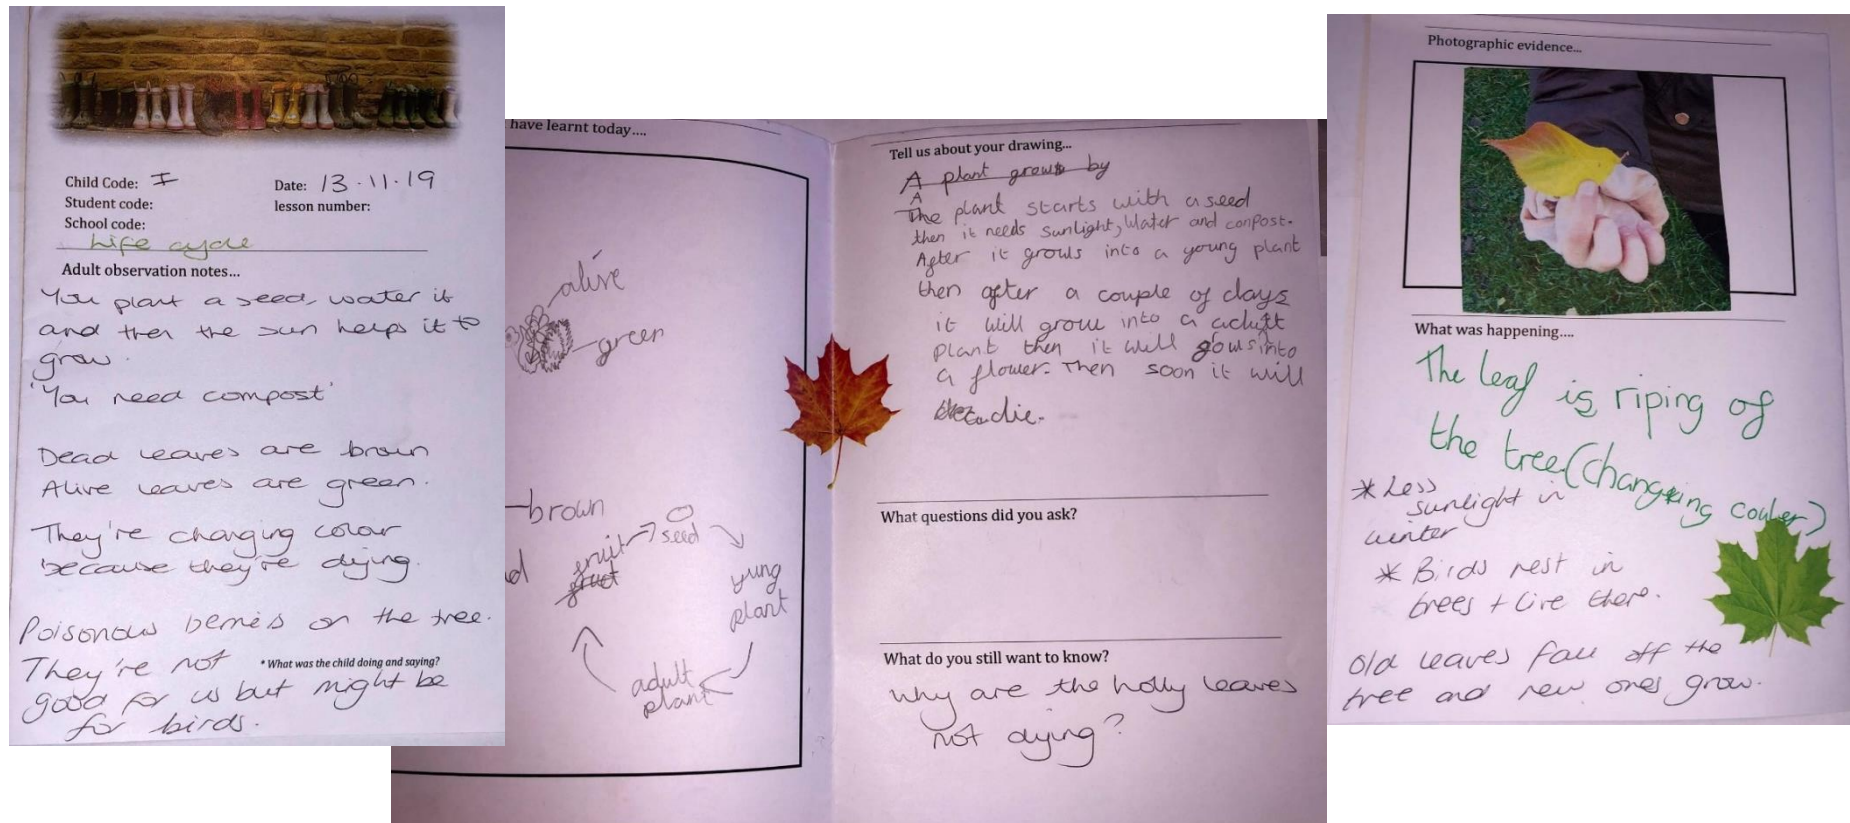 Child Code: I
Date: 13.11.19
Student code:
lesson number:
School code:
Life cycle
Adult observation notes...
You plant a seed, water it
and then the sun helps it to
grow.
'You need compost'
Dead leaves are brown
Alive leaves are green.
They're changing colour
because they're dying.
Poisonous berries on the tree.
They're not
* What was the child doing and saying?
good for us but might be
for birds.
have learnt today....
alive
green
brown
fruit
seed
yung
plant
adult
plant
Tell us about your drawing...
A plant grows by
A
The plant starts with a seed
then it needs sunlight, water and conpost.
After it grows into a young plant
then after a couple of days
it will grow into a adult
plant then it will gows into
a flower. Then soon it will
die.
What questions did you ask?
What do you still want to know?
why are the holly leaves
not dying?
Photographic evidence...
What was happening....
The leaf is riping of
the tree (changing couler)
* Less
sunlight in
winter
* Birds nest in
trees + live there.
Old leaves fall off the
tree and new ones grow.